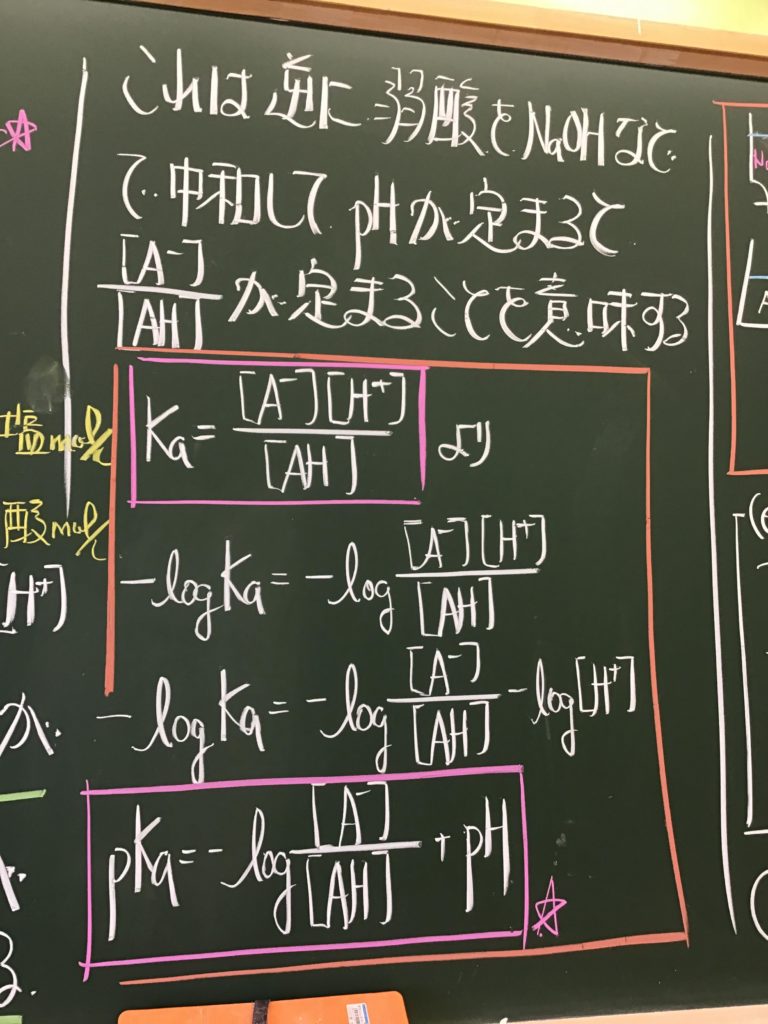 これは逆に弱酸をNaOHなど
で中和してpHが定まると
[A⁻]/[AH] が定まることを意味する
Ka = [A⁻][H⁺]/[AH] より
-log Ka = -log [A⁻][H⁺]/[AH]
-log Ka = -log [A⁻]/[AH] - log[H⁺]
pKa = -log [A⁻]/[AH] + pH
塩 mol/L
酸 mol/L
[H⁺]
が
る.